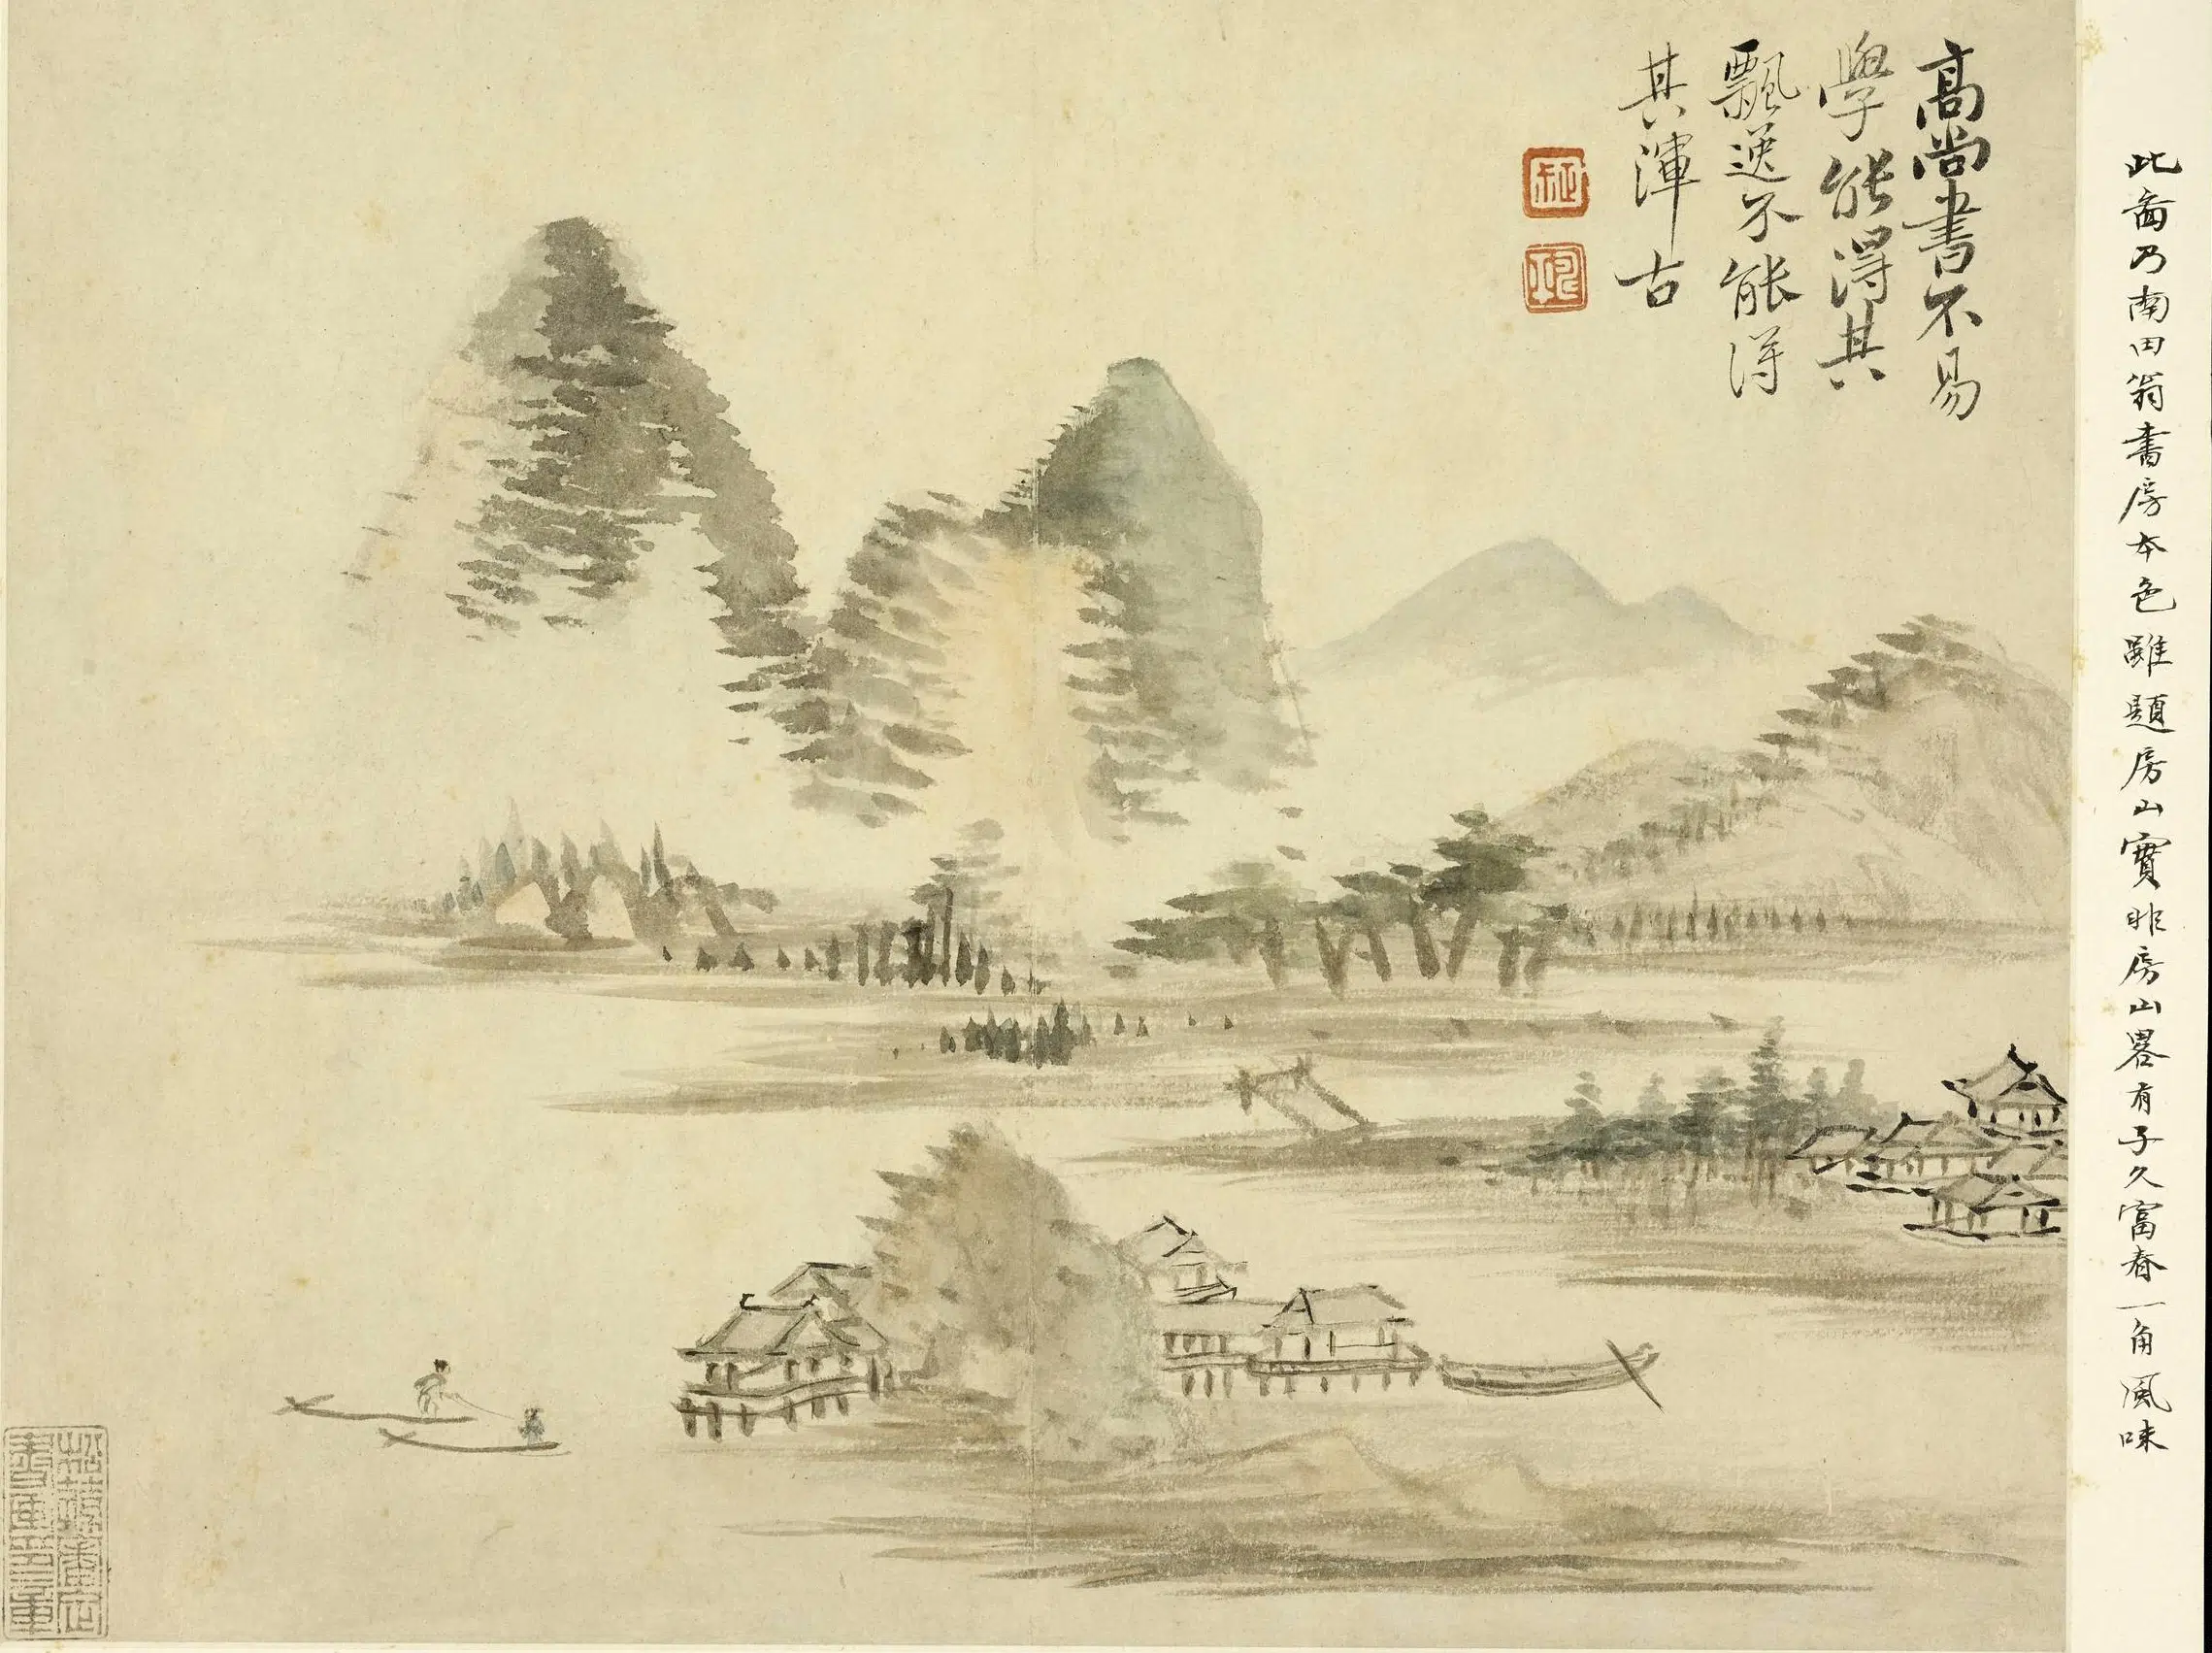 此啚乃南田翁書房本色雖題房山實非房山畧有子久富春一角風味
高尚書不易
學能得其
飄逸不能得
其渾古